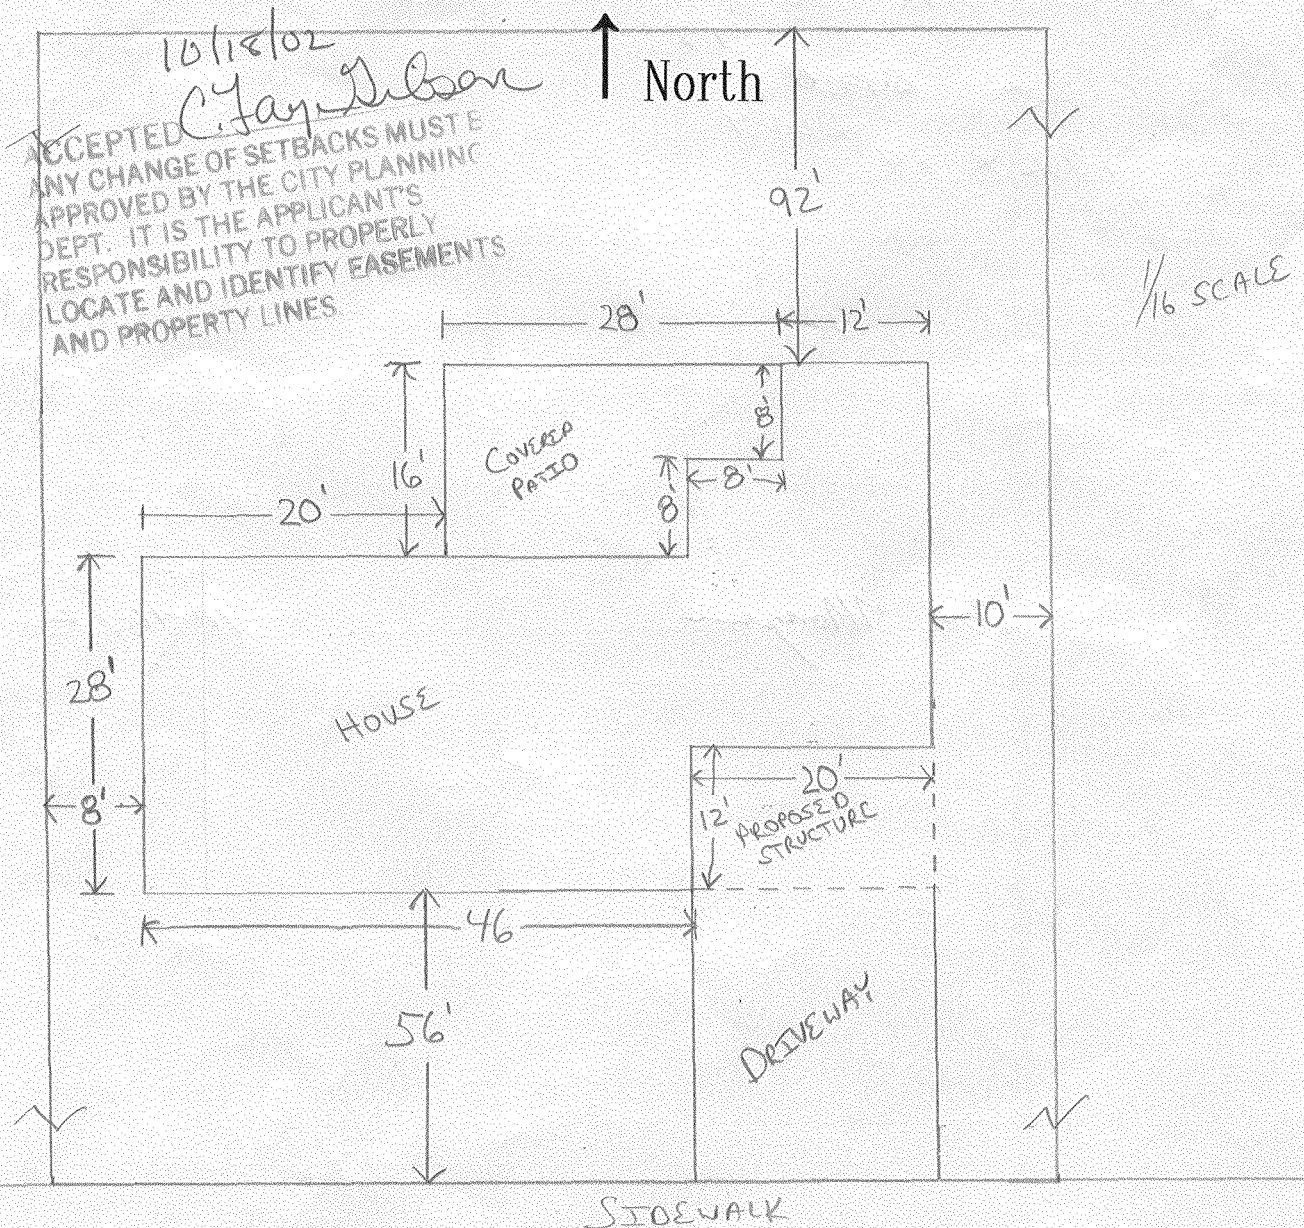 10/18/02
C. Fay Gibson
North
ACCEPTED
ANY CHANGE OF SETBACKS MUST B
APPROVED BY THE CITY PLANNING
DEPT. IT IS THE APPLICANT'S
RESPONSIBILITY TO PROPERLY
LOCATE AND IDENTIFY EASEMENTS
AND PROPERTY LINES
92'
1/16 SCALE
28'
12'
16'
COVERED
PATIO
8'
8'
8'
20'
10'
28'
HOUSE
8'
20'
12'
PROPOSED
STRUCTURE
46
56'
DRIVEWAY
SIDEWALK